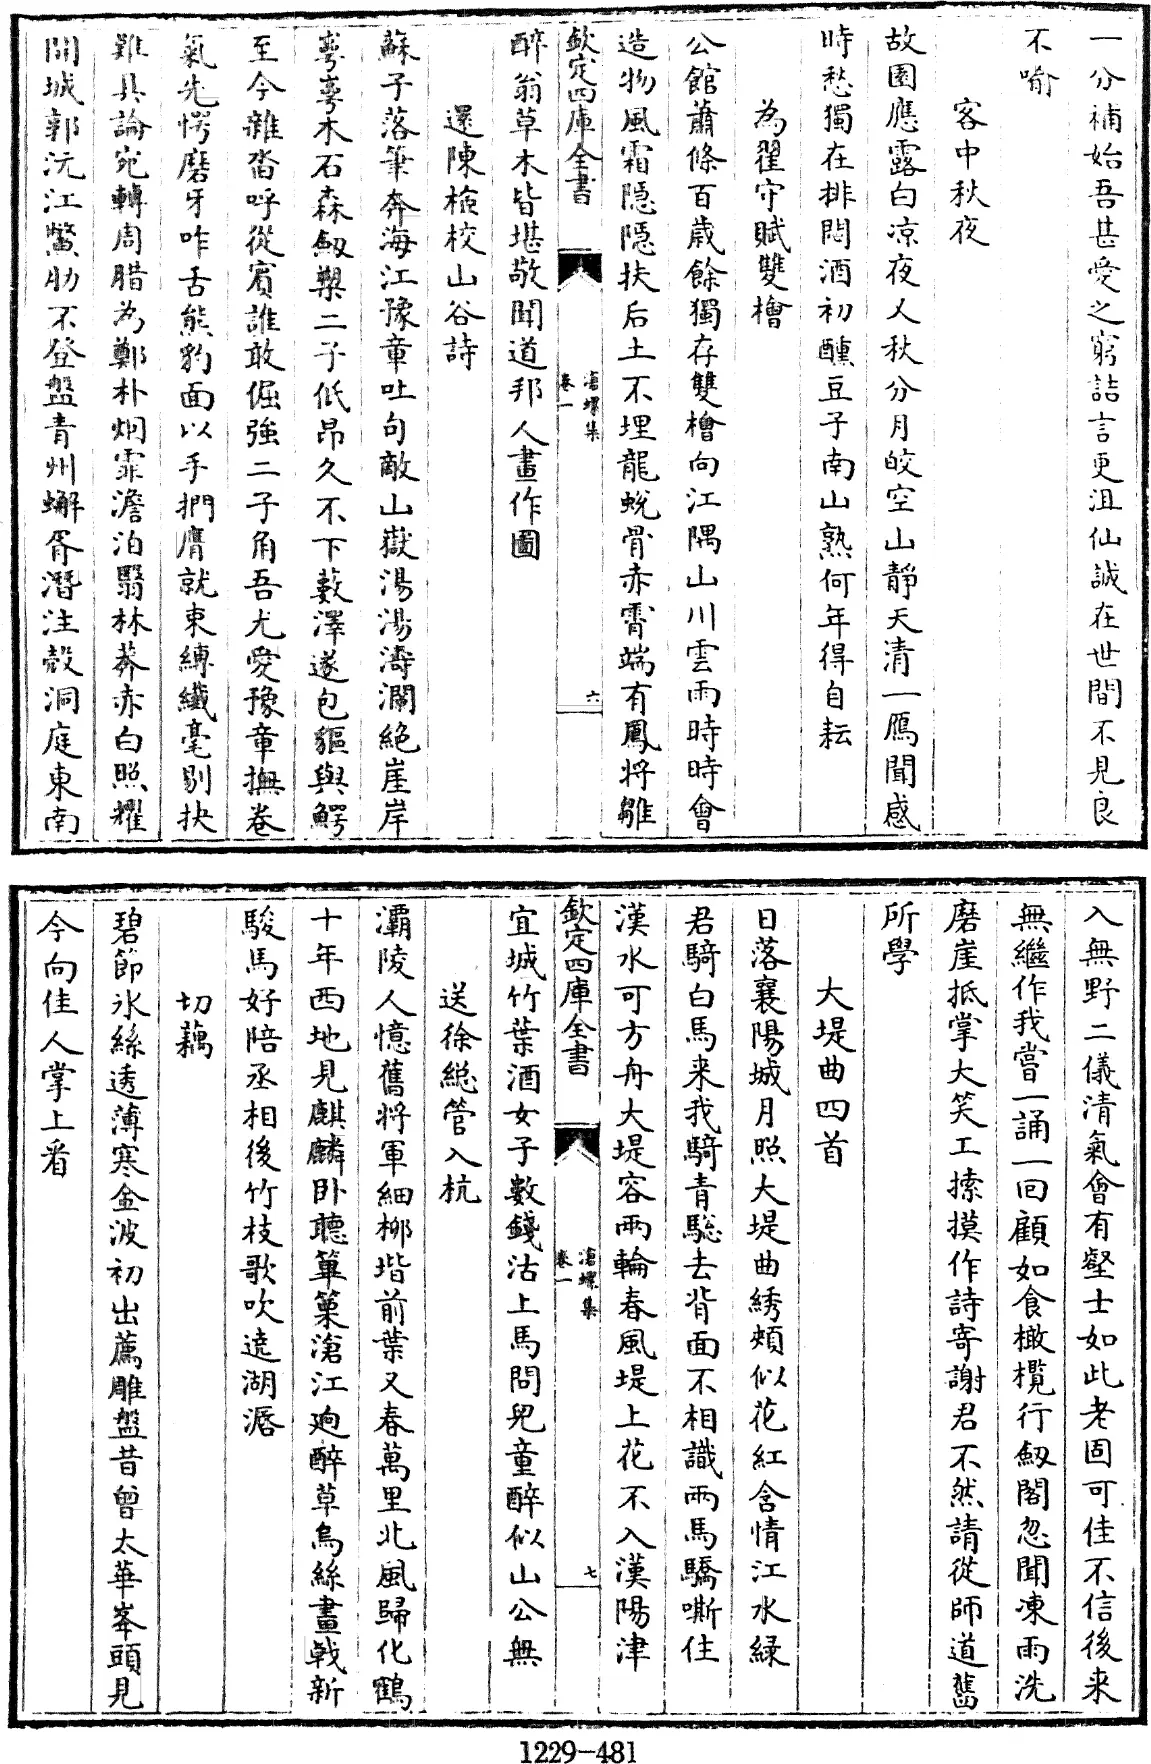 一分補始吾甚愛之窮詰言更沮仙誠在世間不見良
不喻
客中秋夜
故園應露白涼夜乂秋分月皎空山靜天清一鴈聞感
時愁獨在排悶酒初醺豆子南山熟何年得自耘
為翟守賦雙檜
公館蕭條百歲餘獨存雙檜向江隅山川雲雨時時會
造物風霜隱隱扶后土不埋龍蛻骨赤霄端有鳳將雛
欽定四庫全書
滄螺集
卷一
六
醉翁草木皆堪敬聞道邦人畫作圖
還陳檢校山谷詩
蘇子落筆奔海江豫章吐句敵山嶽湯湯濤瀾絕崖岸
崿崿木石森劔槊二子低昂久不下藪澤遂包貙與鰐
至今雜沓呼從賓誰敢倔強二子角吾尤愛豫章撫卷
氣先愕磨牙咋舌熊豹面以手捫膺就束縛纖毫剔抉
難具論宛轉周腊為鄭朴烟霏澹泊翳林莽赤白照耀
開城郭沅江鱉肋不登盤青州蠏胥潛注殼洞庭東南
入無野二儀清氣會有壑士如此老固可佳不信後来
無繼作我嘗一誦一回顧如食橄欖行劔閣忽聞凍雨洗
磨崖抵掌大笑工摸摸作詩寄謝君不然請從師道舊
所學
大堤曲四首
日落襄陽城月照大堤曲綉頰似花紅含情江水緑
君騎白馬来我騎青驄去背面不相識兩馬驕嘶住
漢水可方舟大堤容兩輪春風堤上花不入漢陽津
欽定四庫全書
滄螺集
卷一
七
宜城竹葉酒女子數錢沽上馬問兒童醉似山公無
送徐總管入杭
灞陵人憶舊將軍細栁堦前葉又春萬里北風歸化鶴
十年西地見麒麟卧聽篳篥滄江逈醉草烏絲畫戟新
駿馬好陪丞相後竹枝歌吹遶湖漘
切藕
碧節氷絲透薄寒金波初出薦雕盤昔曾太華峯頭見
今向佳人掌上看
1229-481